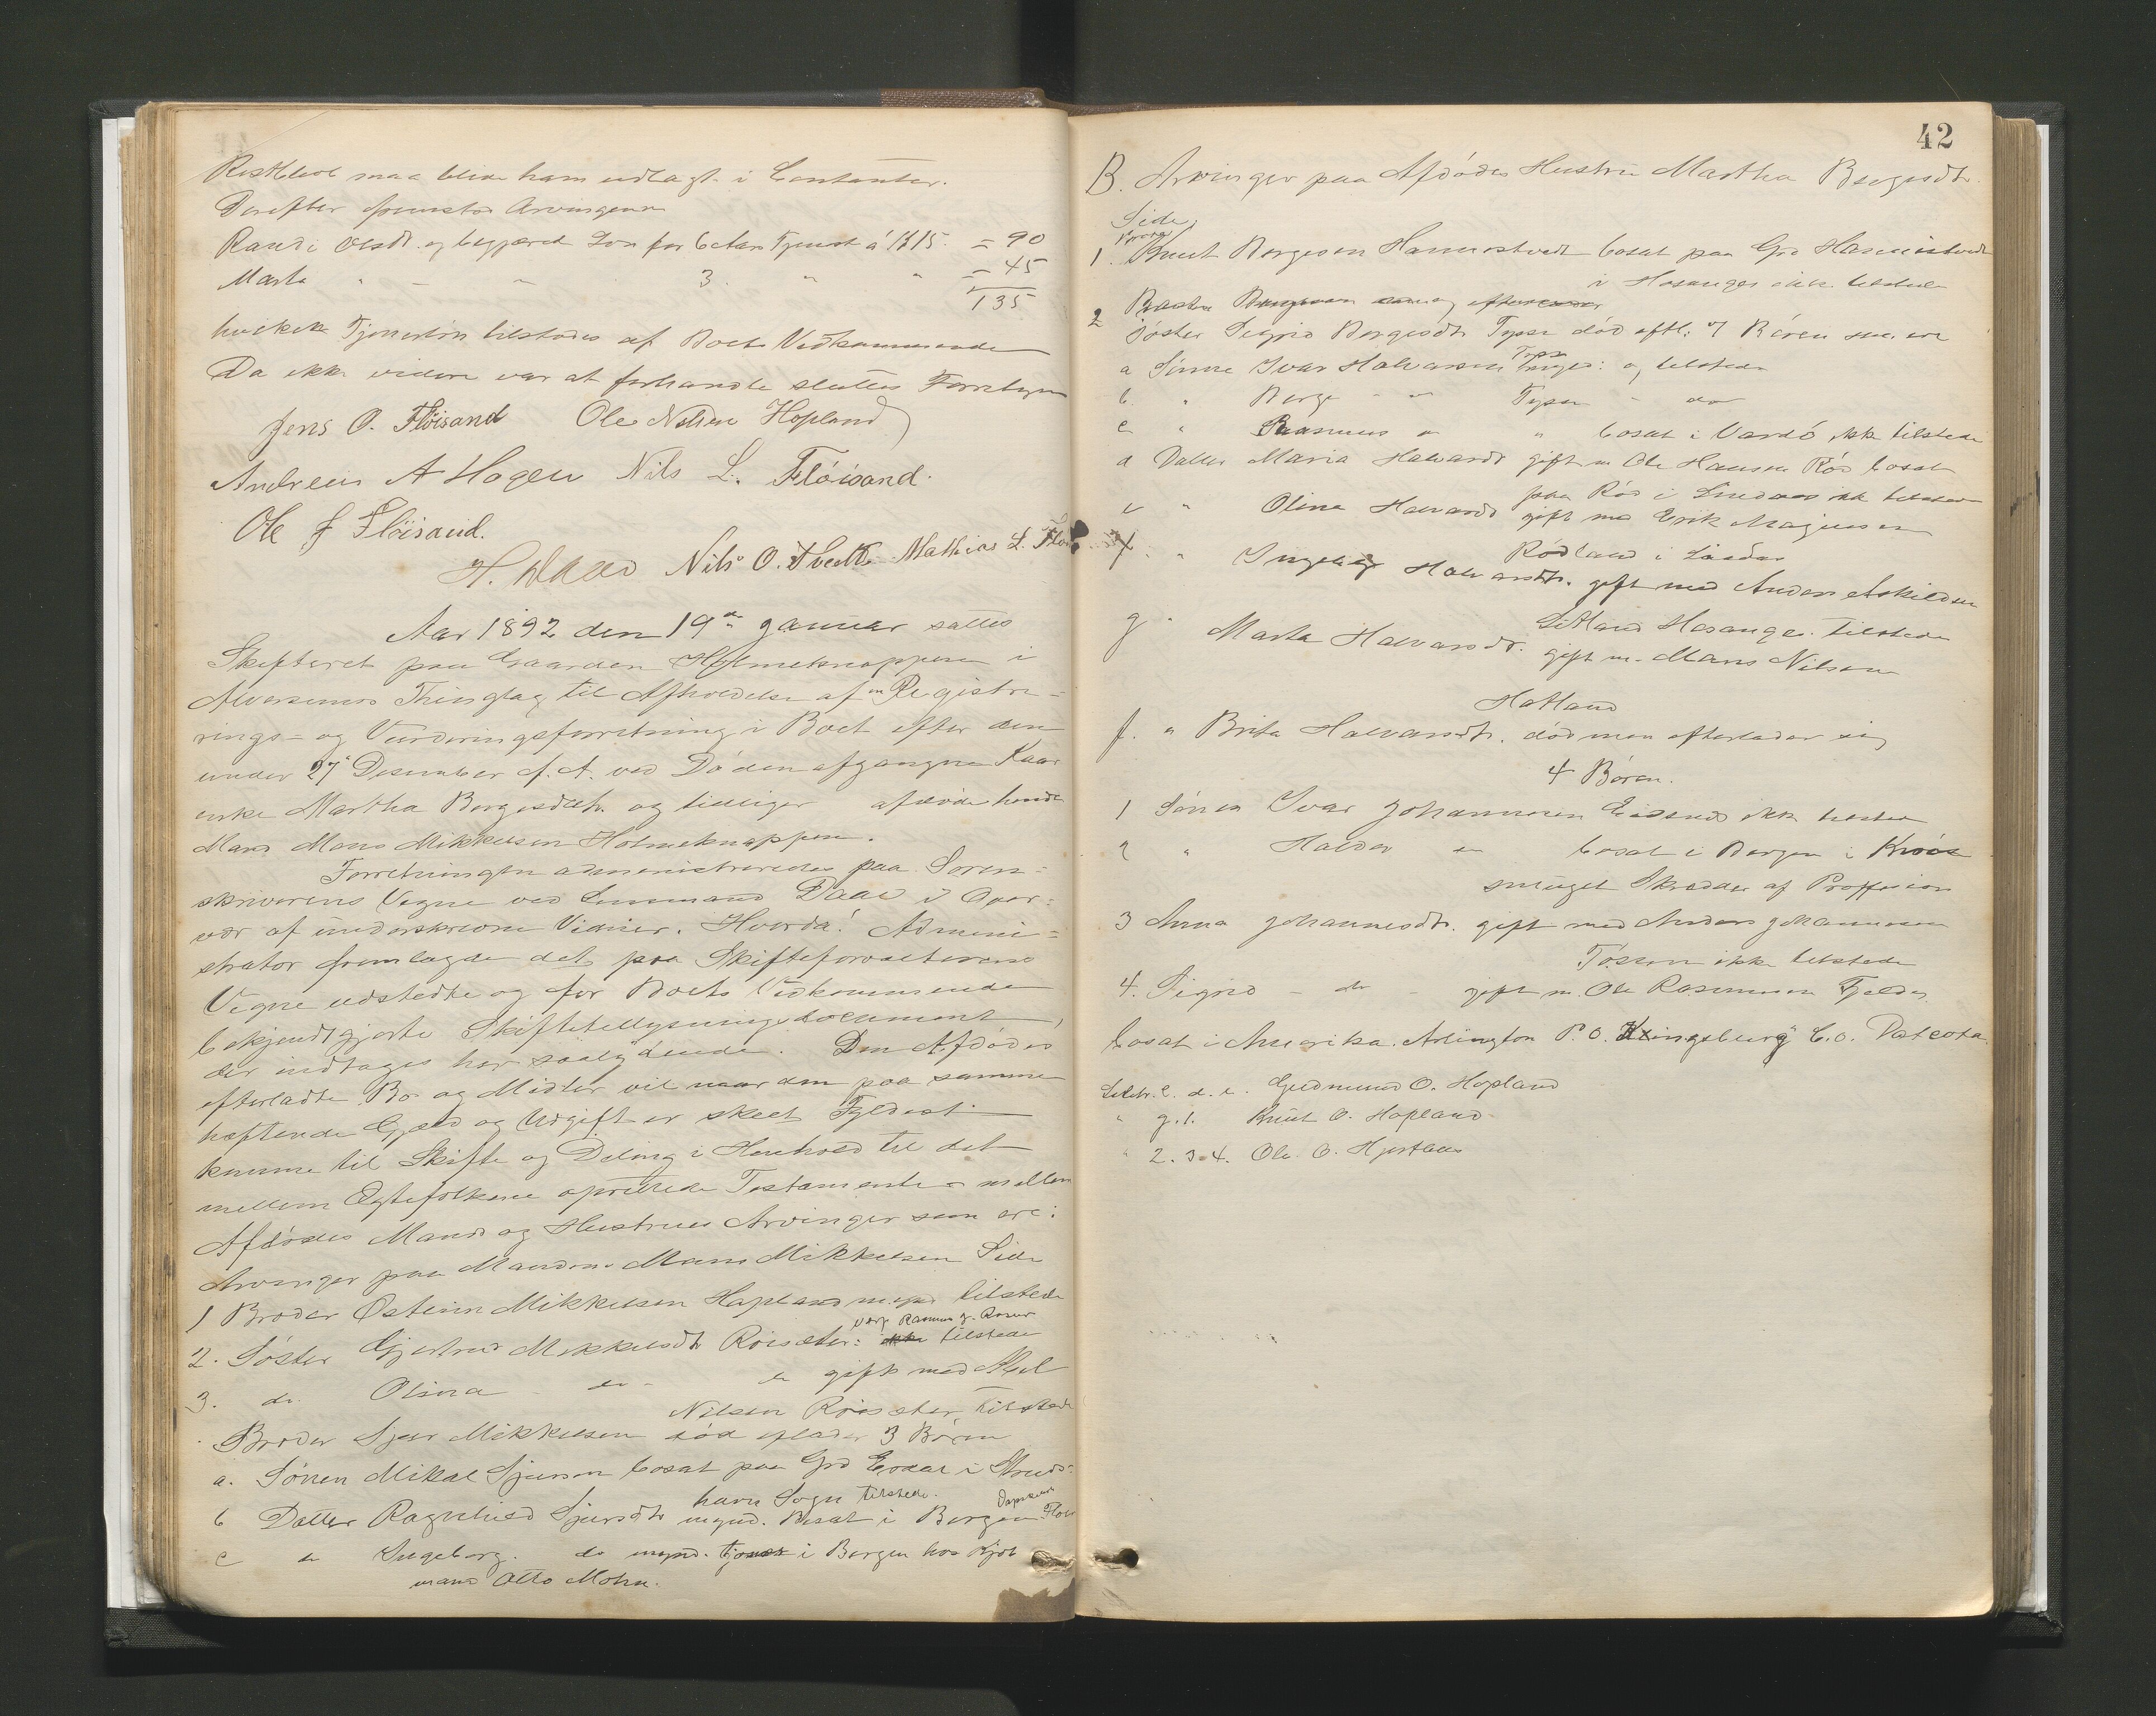 Restbeløb maa blive ham udlagt i Contanter.
Derefter fremstod Arvingerne
Randi Olsdt. og begjæred Løn for 6 Aars Tjenest á Kr 15 = 90
Marta " - " 3 " " = 45
135
hvilken Tjenerløn tilstodes af Boets Vedkommende
Da ikke videre var at forhandle sluttes Forretn
Jens O. Fløisand Ole Nelsen Hopland
Andreas A Hagen Nils L. Flöisand.
Ole J Flöisand.
H. Daae Nils O. Mathias L. Flöi
Aar 1892 den 19de Januar sattes
Skifteret paa Gaarden Holmeknappen i
Alversunds Thinglag til Afholdelse af en Registre-
rings- og Vurderingsforretning i Boet efter den
under 27de Desember f. A. ved Døden afgangne Kaar
enke Martha Børgesdtr. og tidliger afdøde hendes
Mand Mons Mikkelsen Holmeknappen.
Forretningen administreredes paa Soren-
skriverens Vegne ved Lensmand Daae i Over-
vær af underskrevne Vidner. Hvorda! Admini-
strator fremlagde det paa Skifteforvalterens
Vegne udstedte og for Boets Vedkommende
bekjendtgjorte Skiftetillysningsdocument,
der indtages her saalydende. Den Afdødes
efterladte Bo og Midler vil naar den paa samme
hæftende Gjæld og Udgift er skeet Fyldest
komme til Skifte og Deling i Henhold til det
mellem Ægtefolkene oprettede Testamente mellem
Afdødes Mands og Hustrues Arvinger som ere:
Arvinger paa Mandens Mons Mikkelsen Side
1 Broder Østein Mikkelsen Hopland myndig tilstede
2. Søster Gjertrud Mikkelsdt Røissæter: værge Rasmus J. ikke tilstede
3. do. Olina - do - do gift med
Nilsen Röissæter tilstede
Broder Sjur Mikkelsen död eflader 3 Børn
a. Sönen Mikal Sjursen bosat paa Grd i
havn Sogn tilstede.
b Datter Ragnhild Sjursdtr mynd. Bosat i Bergen
c do Ingeborg. do mynd. tjener i Bergen hos Kjöb
mand Otto Mohn.
42
B. Arvinger paa Afdødes Hustru Martha Børgesdtr.
Side.
1. Broder Knut Børgesen Hannestvedt bosat paa Grd Hannestvedt
i Hosanger ikke tilstede
2
Søster Sigrid Børgesdtr Tysse död eftl: 7 Børn som ere
a Sönne Ivar Halvarsen Tysse myndig: og tilstede
b. " Børge - " Tysse - do
c " Rasmus " " bosat i Vardö ikke tilstede
d Datter Maria Halvardsd gift m Ole Hansen Rös bosat
paa Rös i Lindaas ikk tilstede
e " Oline Halvardsd gift med Erik Magnussen
Rödland i Lindaas
f " Ingeborg Halvarsdtr. gift med Anders Askildsen
Litland Hosanger tilstede
g " Marta Halvarsdtr. gift m. Mons Nilsen
Hatland
f. " Brita Halvarsdtr. död men efterlader sig
4 Børen.
1 Sönen Ivar Johannesen Eidsnes ikke tilstede
2 " Haldor " bosat i Bergen i
smuget Skredder af Proffesion
3 Anna Johannesdtr. gift med Anders Johannesen
Tøssen ikke tilstede
4. Sigrid - do - gift m. Ole Rasmussen Fjeldes
bosat i Amerika. Arlington P. O. Kingsburg C.O. Datcota.
c. d. e. Gudmund O. Hopland
" g. 1. Knut O. Hopland
" 2. 3. 4. Ole O. Hjertaas